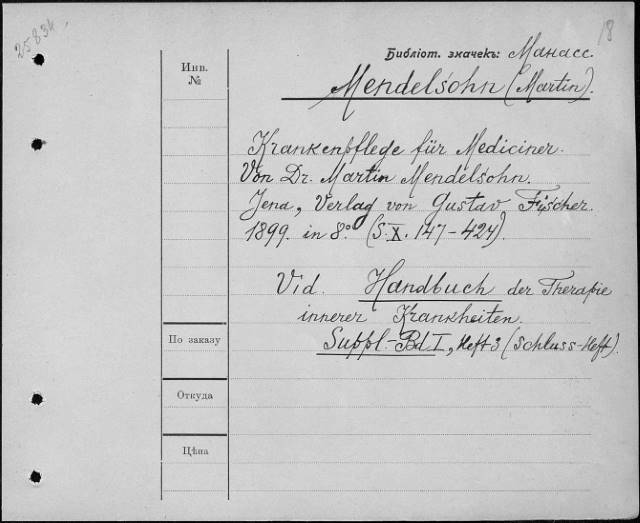 25834
18
Библіот. значекъ: Манасс.
Инв.
№
Mendelsohn (Martin).
Krankenpflege für Mediciner.
Von Dr. Martin Mendelsohn.
Jena, Verlag von Gustav Fischer.
1899. in 8° (S. X. 147-424).
Vid. Handbuch der Therapie
innerer Krankheiten.
Suppl.-Bd I, Heft 3 (Schluss-Heft).
По заказу
Откуда
Цѣна